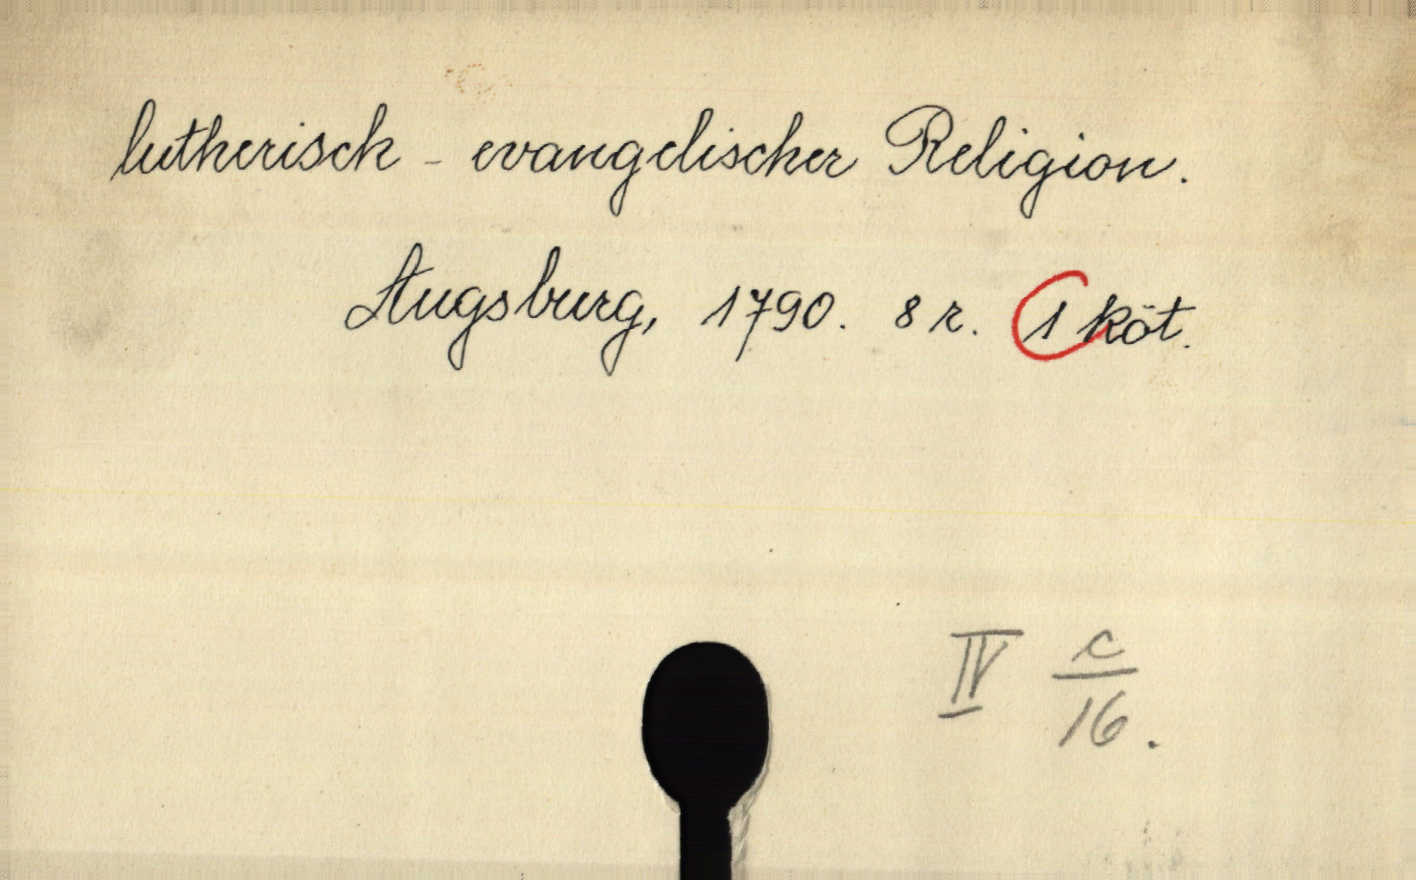 lutherisch - evangelischer Religion.
Augsburg, 1790. 8 r. 1 köt.
IV c/16.